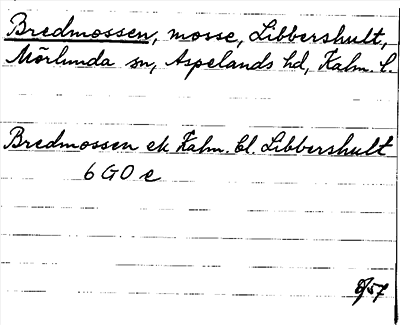 Bredmossen, mosse, Libbershult,
Mörlunda sn, Aspelands hd, Kalm. l.
Bredmossen ek Kalm. bl. Libbershult
6 G0 e